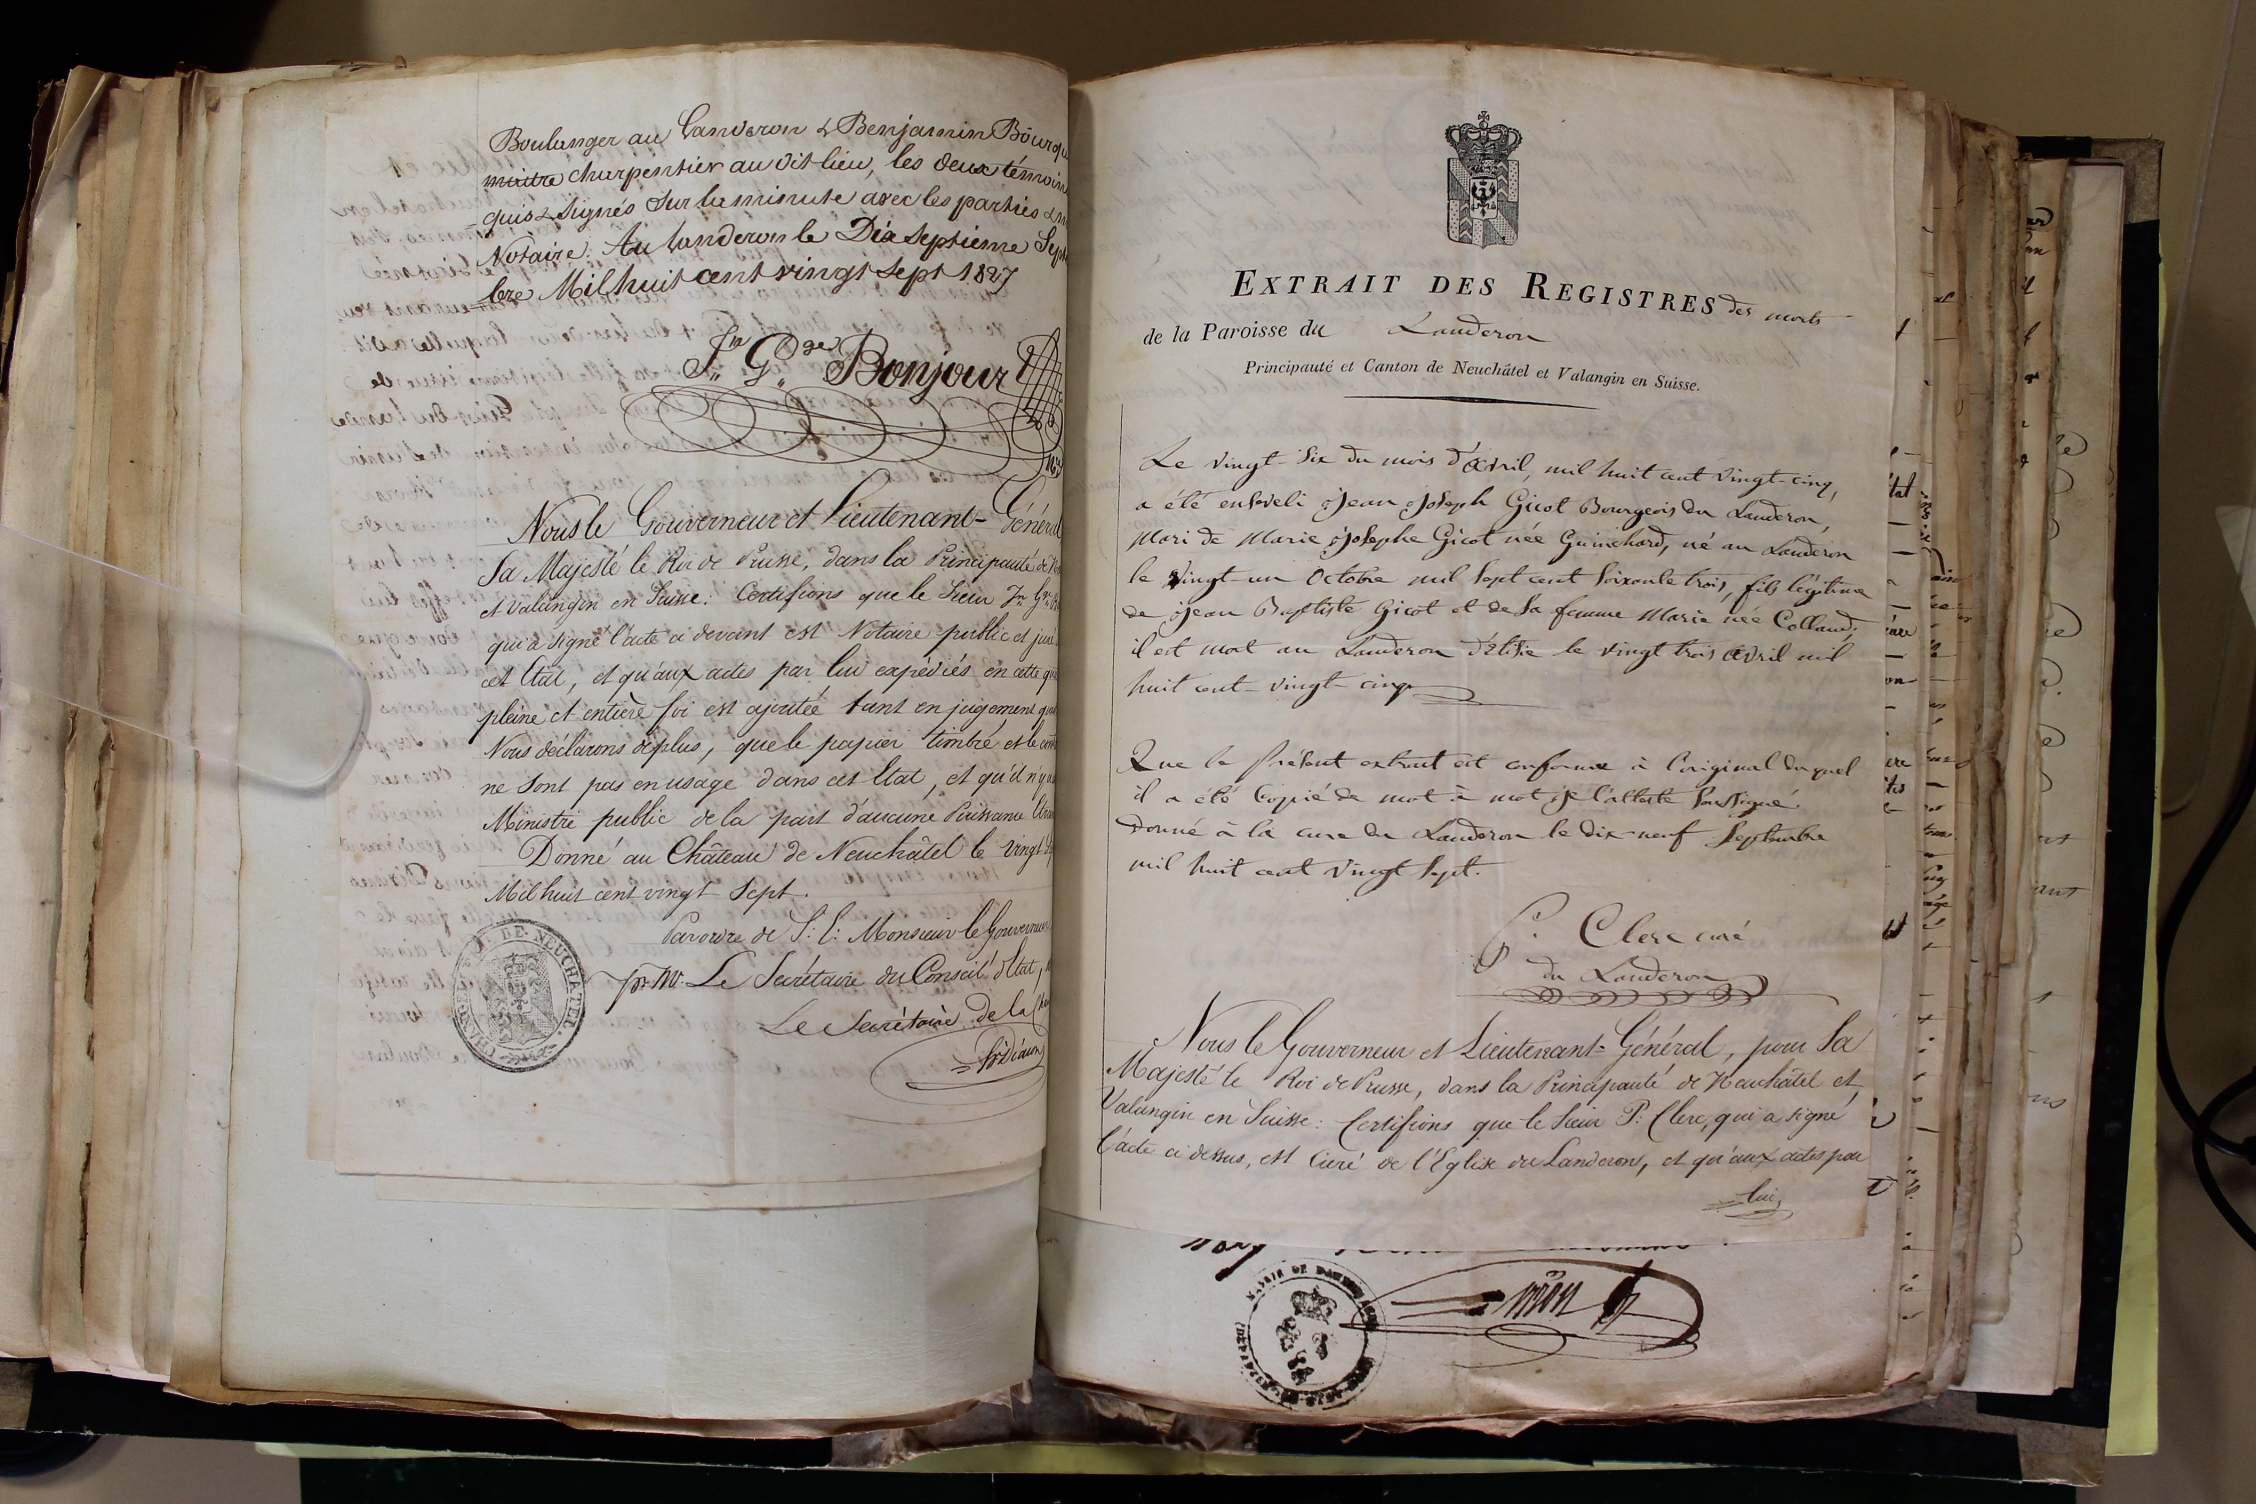 Boulanger au Landeron & Benjamin Bourqu
maitre charpentier au dit lieu, les deux témoin
quis & signés sur la minute avec les parties & m
Notaire. Au Landeron le Dix septième Sept
bre Mil huit cent vingt sept 1827
Jn Gge Bonjour
Not
Nous le Gouverneur et Lieutenant-Général
Sa Majesté le Roi de Prusse, dans la Principauté de N
et Valangin en Suisse: Certifions que le Sieur Jn Ge
qui a signé l'acte ci devant est Notaire public et juré
cet Etat, et qu'aux actes par lui expédiés en cette qu
pleine et entière foi est ajoutée tant en jugement que
Nous déclarons de plus, que le papier timbré et le cont
ne sont pas en usage dans cet Etat, et qu'il n'y a
Ministre public de la part d'aucune Puissance Etran
Donné au Château de Neuchâtel le vingt
Mil huit cent vingt sept.
Par ordre de S: E: Monsieur le Gouverneur
pr. Mr. Le Secrétaire du Conseil d'Etat,
Le Secrétaire de la
DE NEUCHATEL
EXTRAIT DES REGISTRES des morts
de la Paroisse du Landeron
Principauté et Canton de Neuchâtel et Valangin en Suisse.
Le vingt-six du mois d'avril, mil huit cent vingt-cinq,
a été enseveli Jean Joseph Gicot Bourgeois du Landeron,
Mari de Marie Josephe Gicot née Guinchard, né au Landeron
le vingt-un Octobre mil sept cent soixante trois, fils légitime
de Jean Baptiste Gicot et de sa femme Marie née Colland,
il est mort au Landeron d'Etisie le vingt trois avril mil
huit cent-vingt-cinq
Que le présent extrait est conforme à l'original duquel
il a été copié de mot à mot je l'atteste soussigné.
Donné à la cure du Landeron le dix-neuf Septembre
mil huit cent vingt sept.
P. Clerc curé
du Landeron
Nous le Gouverneur et Lieutenant-Général, pour Sa
Majesté le Roi de Prusse, dans la Principauté de Neuchâtel et
Valangin en Suisse: Certifions que le Sieur P: Clerc, qui a signé
l'acte ci dessus, est Curé de l'Eglise du Landeron, et qu'aux actes par
lui